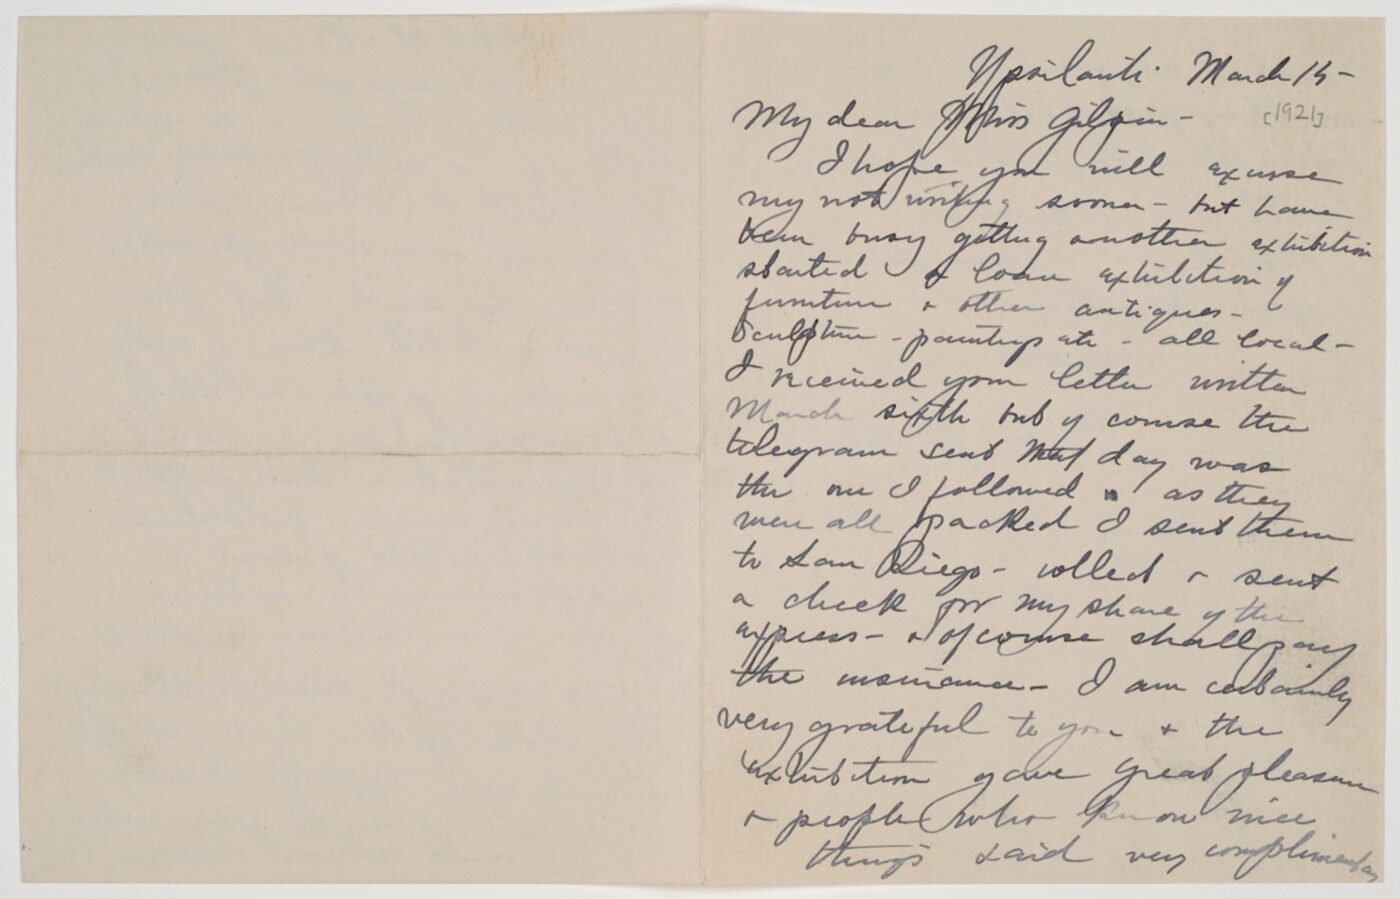 Ypsilanti. March 15 -
My dear Miss Gilpin - [1921]
I hope you will excuse
my not writing sooner - but have
been busy getting another exhibition
started a loan exhibition of
furniture + other antiques -
Sculpture - paintings etc - all local -
I received your letter written
March sixth but of course the
telegram sent that day was
the one I followed as they
were all packed I sent them
to San Diego - collect + sent
a check for my share of the
express - + of course shall pay
the insurance - I am certainly
very grateful to you + the
exhibition gave great pleasure
+ people who know nice
things said very complimentary